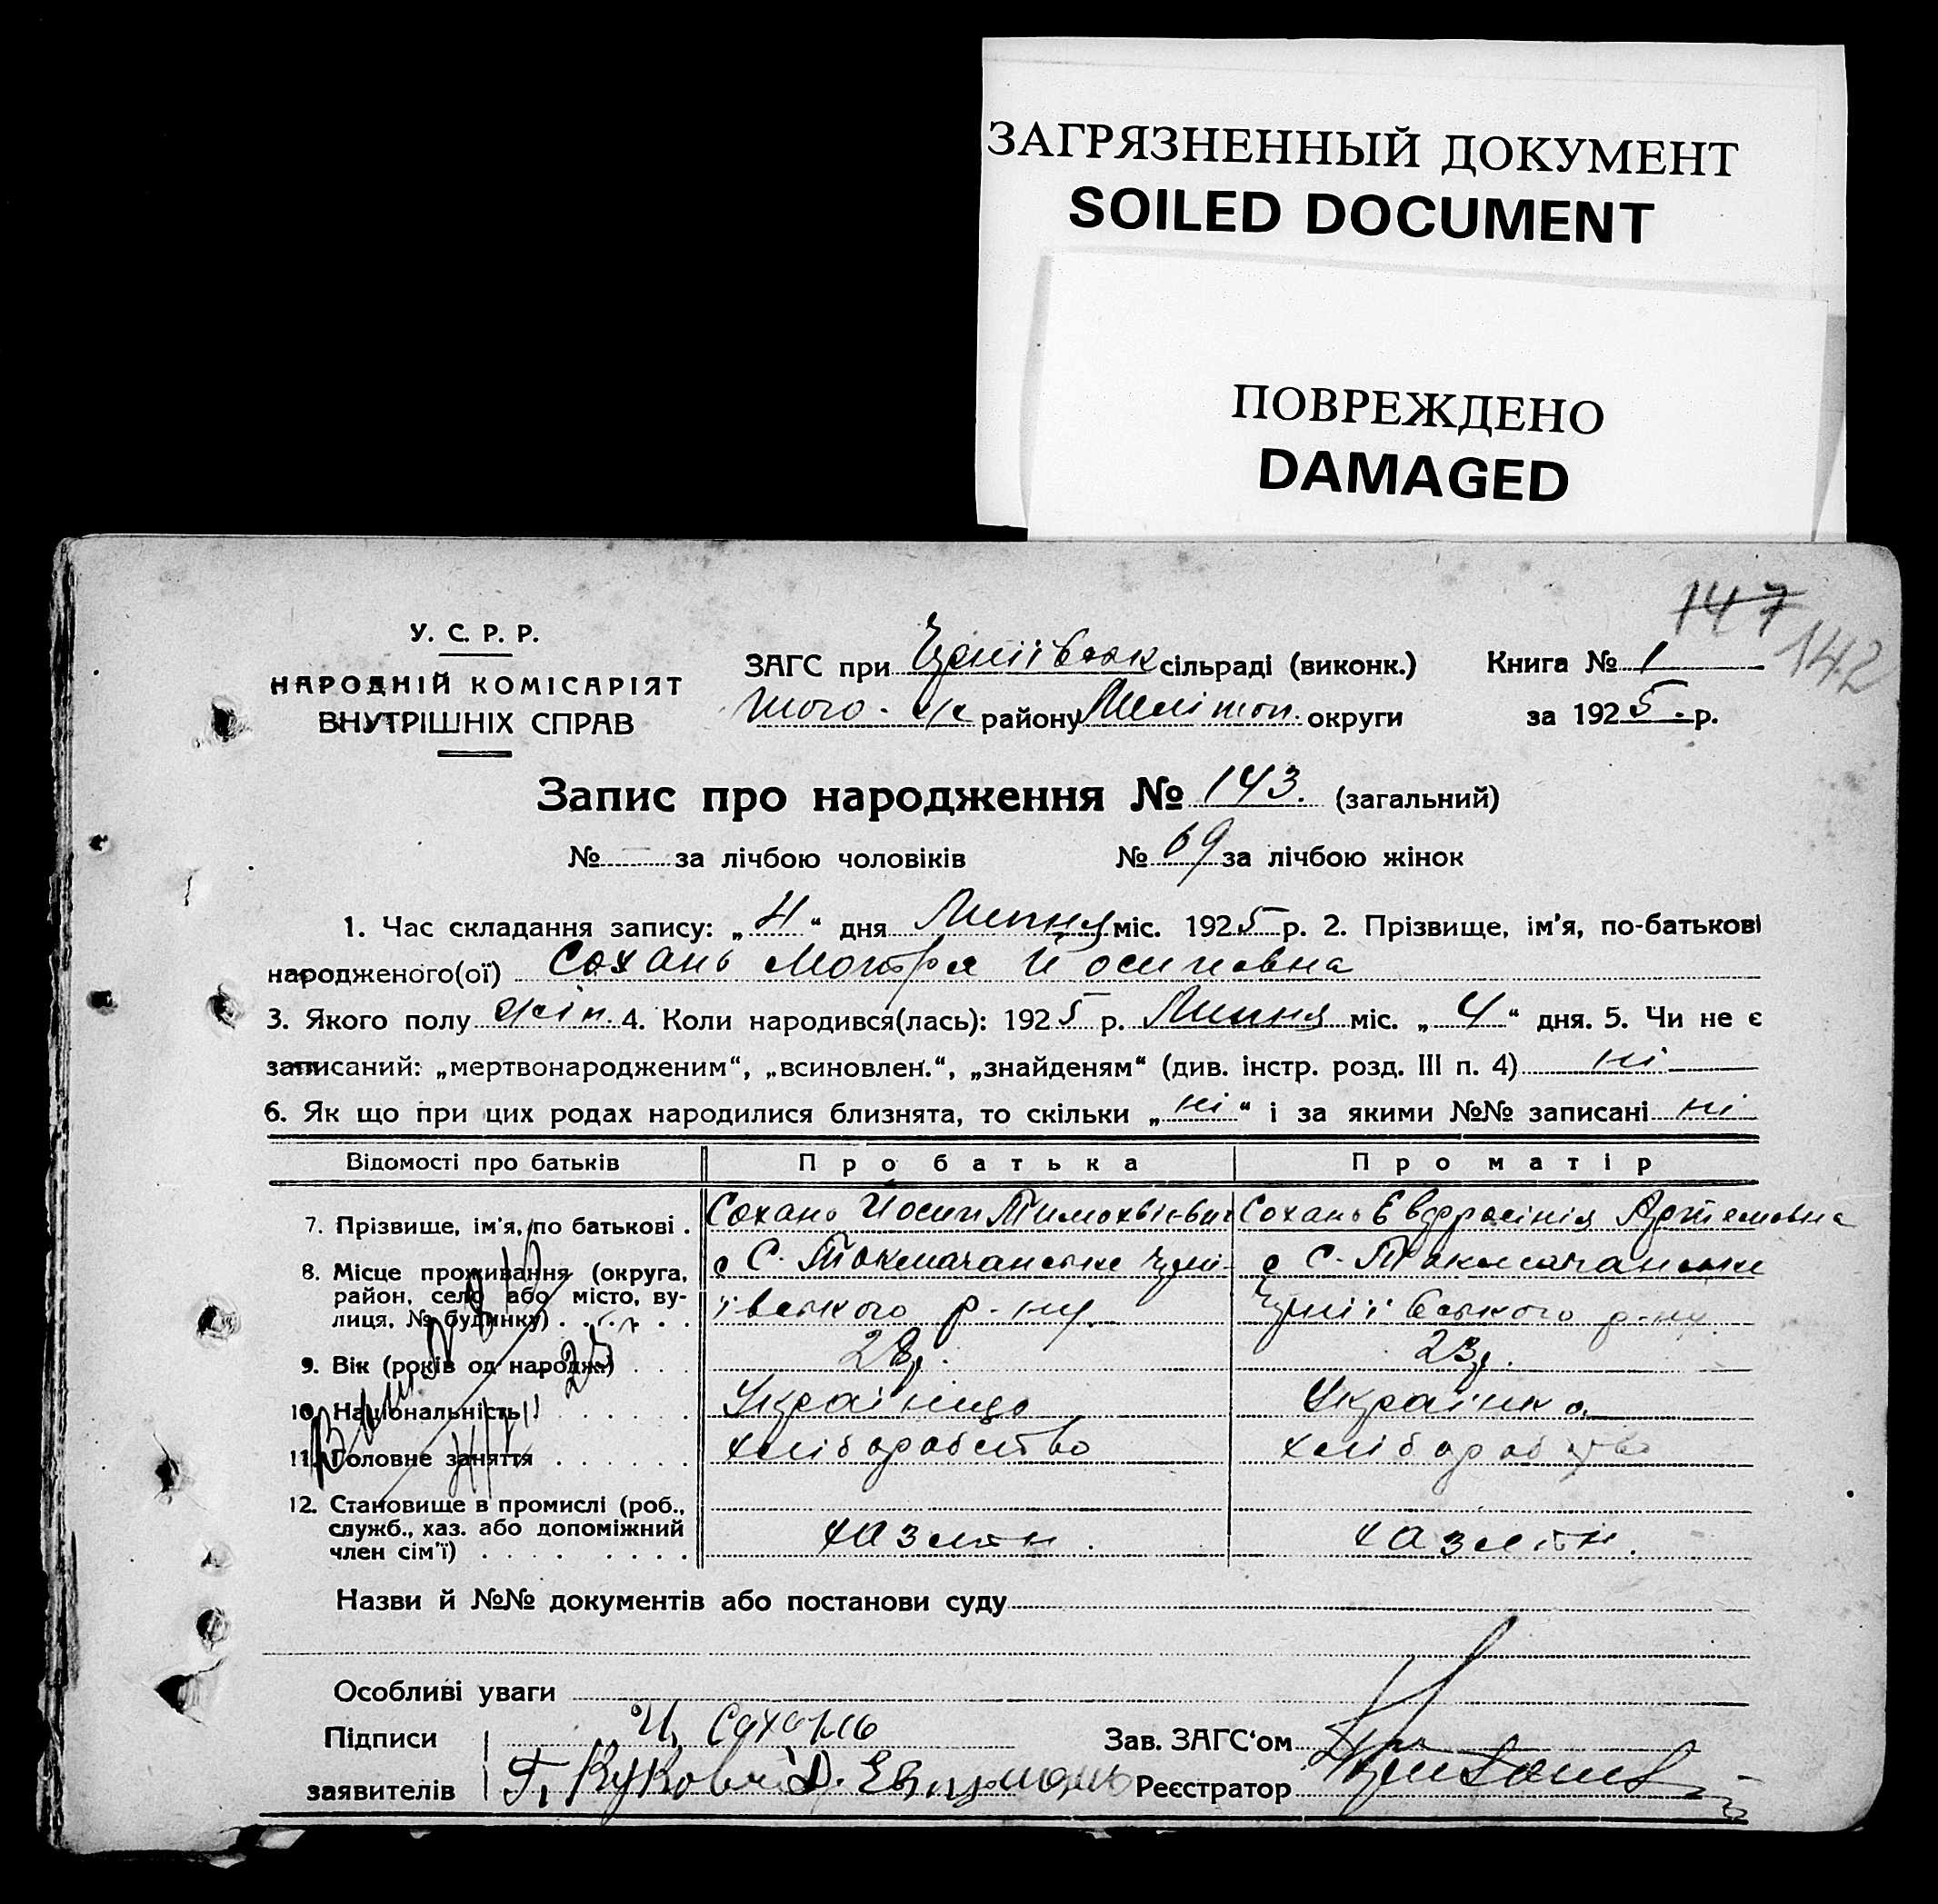 ЗАГРЯЗНЕННЫЙ ДОКУМЕНТ
SOILED DOCUMENT
ПОВРЕЖДЕНО
DAMAGED
147
142
У. С. Р. Р.
НАРОДНІЙ КОМІСАРІЯТ
ВНУТРІШНІХ СПРАВ
ЗАГС при сільраді (виконк.) Книга № 1
того-ж району Мелітоп. округи за 1925 р.
Запис про народження № 143. (загальний)
№ — за лічбою чоловіків № 69 за лічбою жінок
1. Час складання запису: „ “ дня Липня міс. 1925 р. 2. Прізвище, ім'я, по-батькові
народженого(ої) Сохань Мотря Йосиповна
3. Якого полу жін. 4. Коли народився(лась): 1925 р. Липня міс. „4“ дня. 5. Чи не є
записаний: „мертвонародженим“, „всиновлен.“, „знайденям“ (див. інстр. розд. III п. 4) ні
6. Як що при цих родах народилися близнята, то скільки „ні“ і за якими №№ записані ні
Відомості про батьків Про батька Про матір
7. Прізвище, ім'я, по батькові . Сохань Йосип Тимохвієвич Сохань Евфросінія Артемовна
8. Місце проживання (округа, район, село або місто, вулиця, № будинку) . . . . . с С. Токмачанське р-ну. с С. Токмачанське р-ну.
9. Вік (років од народж.) . . . 28р. 23р.
10. Національність . . . . . . Українець Українка
11. Головне заняття . . . . . . хліборобство хліборобство
12. Становище в промислі (роб., служб., хаз. або допоміжний член сім'ї) . . . . . . .
Назви й №№ документів або постанови суду
Особливі уваги
Підписи И. Сохань Зав. ЗАГС'ом
заявителів Г. Реєстратор